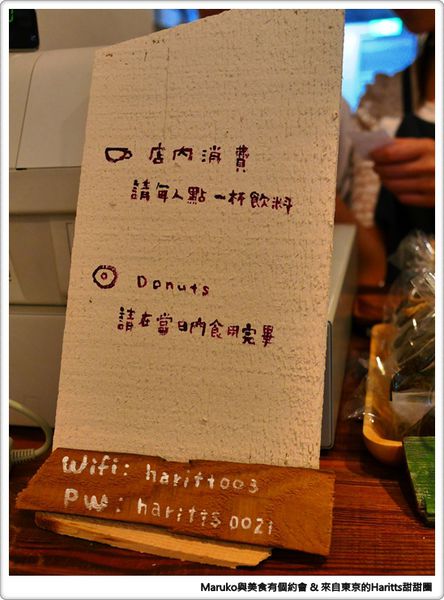 店內消費
請每人點一杯飲料
Donuts
請在當日內食用完畢
Wifi: haritt003
PW: haritts0021
Maruko與美食有個約會 & 來自東京的Haritts甜甜圈